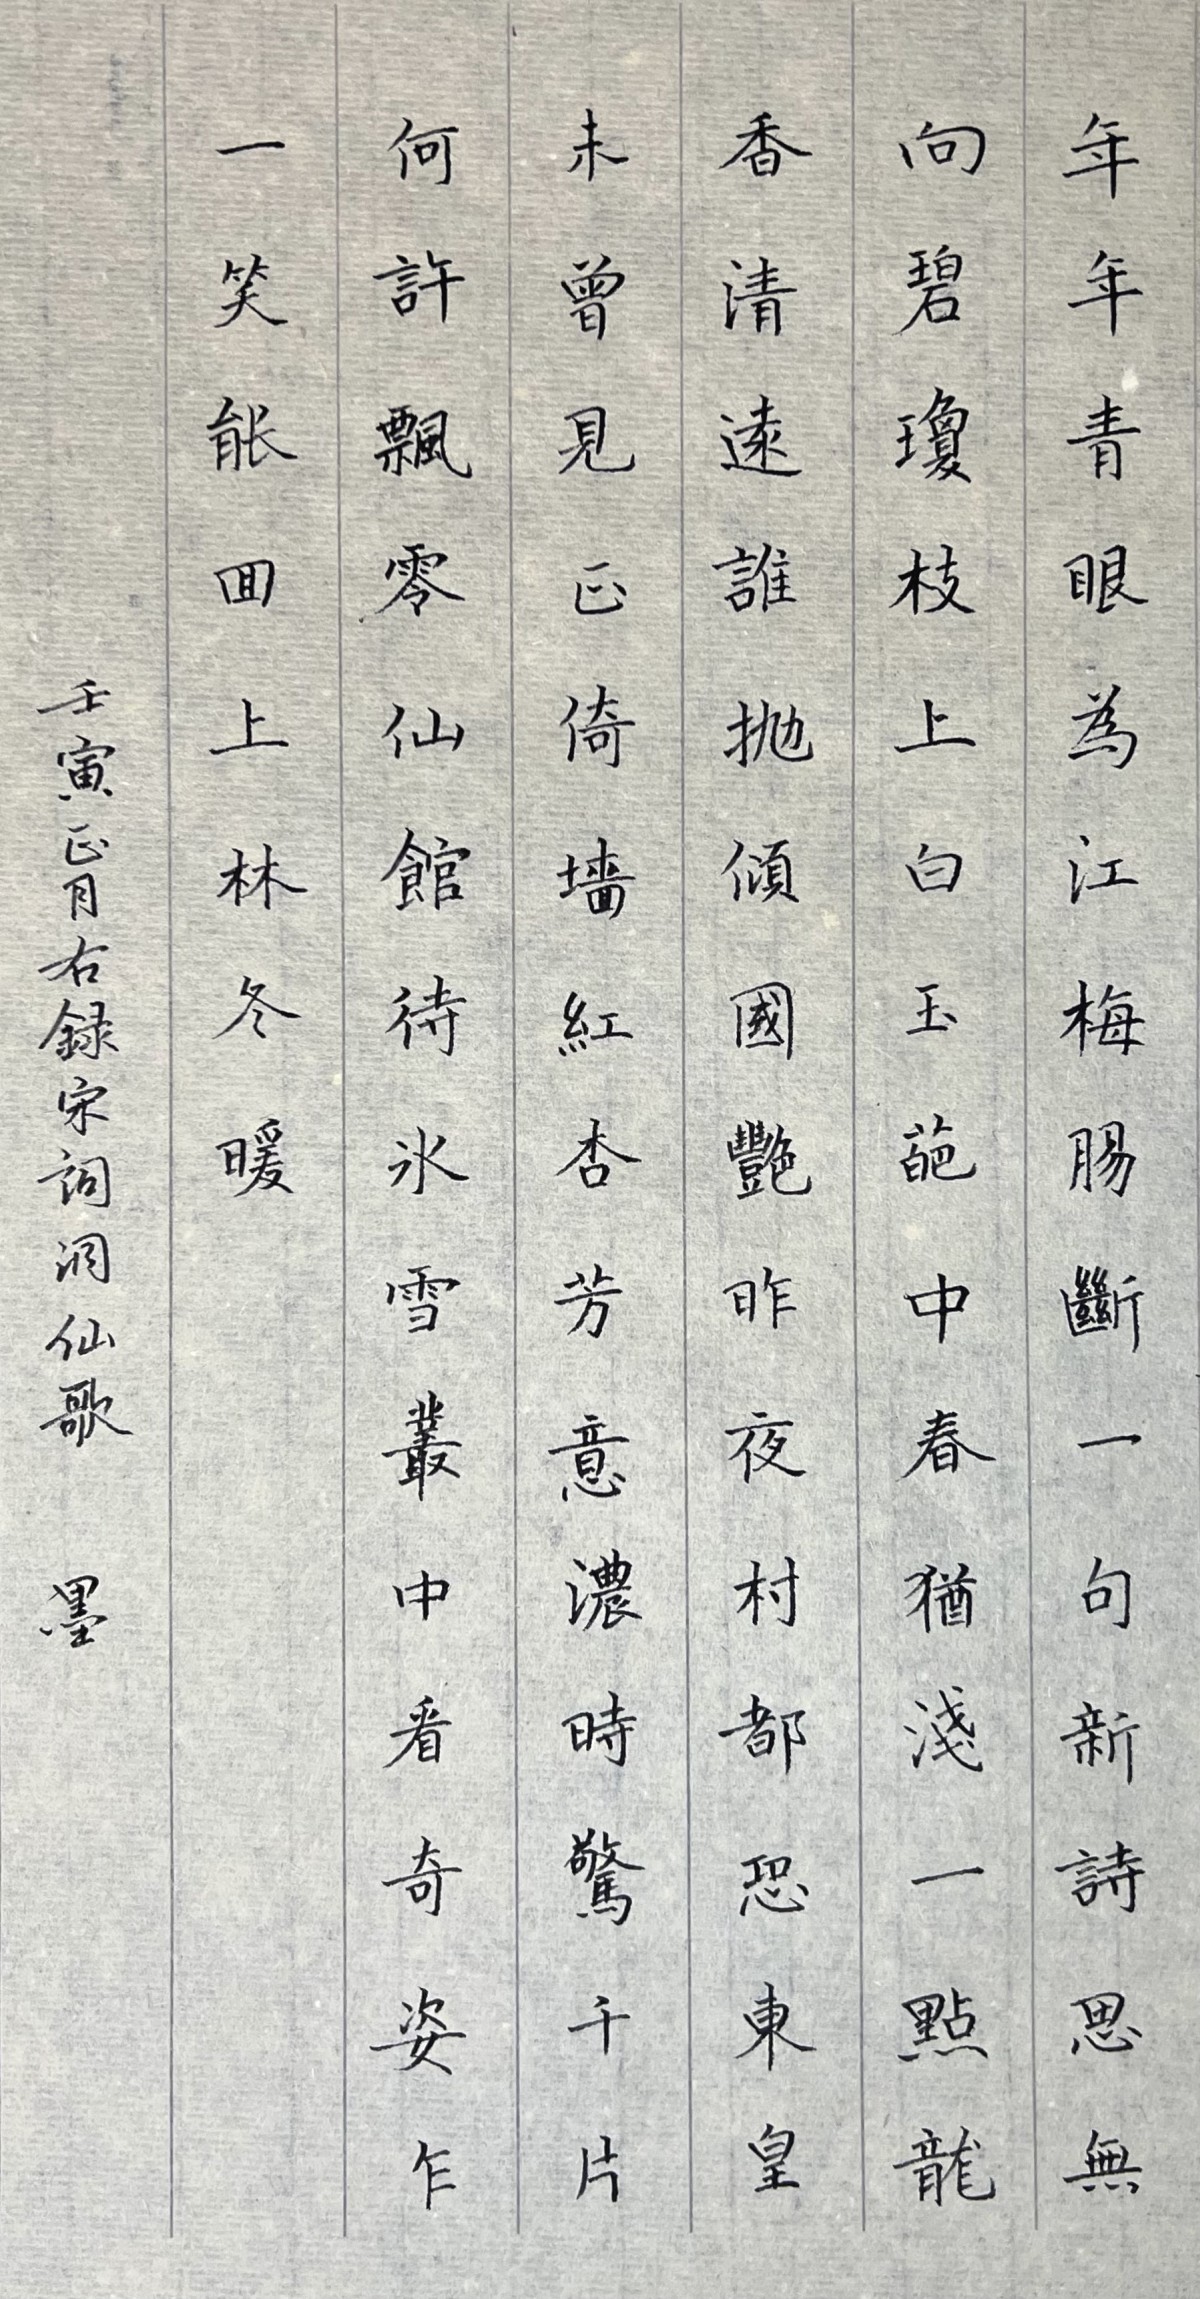 年年青眼為江梅腸斷一句新詩思無
向碧瓊枝上白玉葩中春猶淺一點龍
香清遠誰拋傾國艷昨夜村都恐東皇
未曾見正倚墻紅杏芳意濃時驚千片
何許飄零仙館待冰雪叢中看奇姿乍
一笑能回上林冬暖
壬寅正月右録宋詞洞仙歌 墨